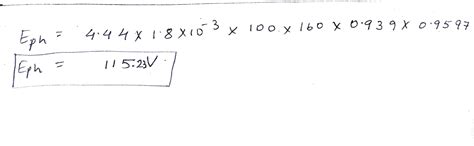 Eph = 4.44 x 1.8 x 10⁻³ x 100 x 160 x 0.939 x 0.9597
Eph = 115.23V.